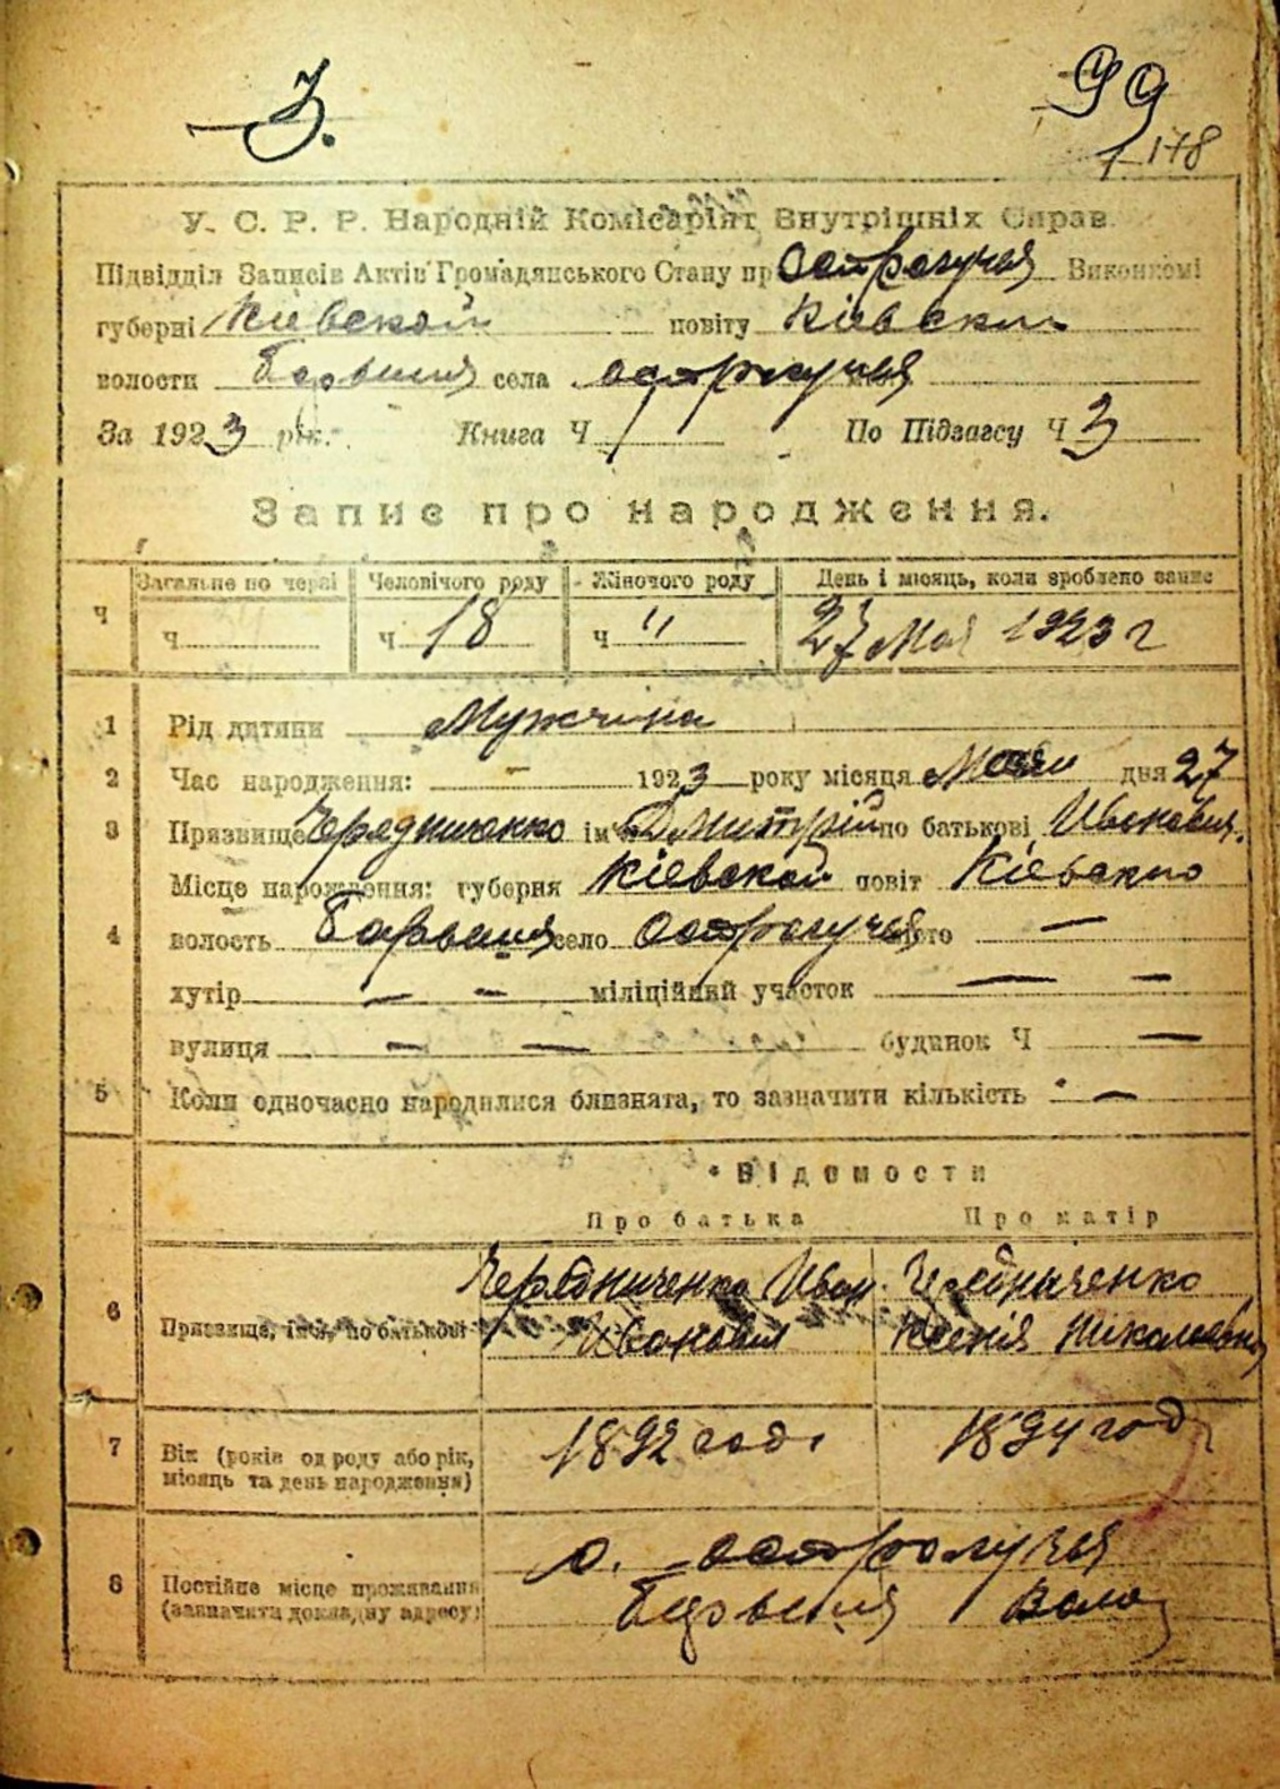 3.
99
178
У. С. Р. Р. Народній Комісаріят Внутрішніх Справ.
Підвідділ Записів Актів Громадянського Стану пр Остролучья Виконкомі
губерні Кіевской повіту Кіевскаго
волости Барышпіля села Остролучья
За 1923 рік. Книга Ч 1 По Підзагсу Ч 3
Запис про народження.
Загальне по черзі Человічого роду Жіночого роду День і місяць, коли зроблено запис
Ч Ч Ч 18 Ч " 27 Мая 1923 г
1 Рід дитяни Мужчина
2 Час народження: - 1923 року місяця Мая дня 27
3 Призвище Чередниченко ім'я Дмитрій по батькові Иванович.
Місце народження: губерня Кіевской повіт Кіевскаго
4 волость село Остролучья місто —
хутір — - міліційний участок — —
вулиця — — будинок Ч —
5 Коли одночасно народилися близнята, то зазначити кількість —
Відомости
Про батька Про матір
6 Призвище, ім'я, по батькові Чередниченко Иван Иванович Чередниченко Ксенія Ніколаевна
7 Вік (років од роду або рік, місяць та день народження) 1892 год. 1894 год
8 Постійне місце проживання (зазначити докладну адресу) с. Остролучья
Воло